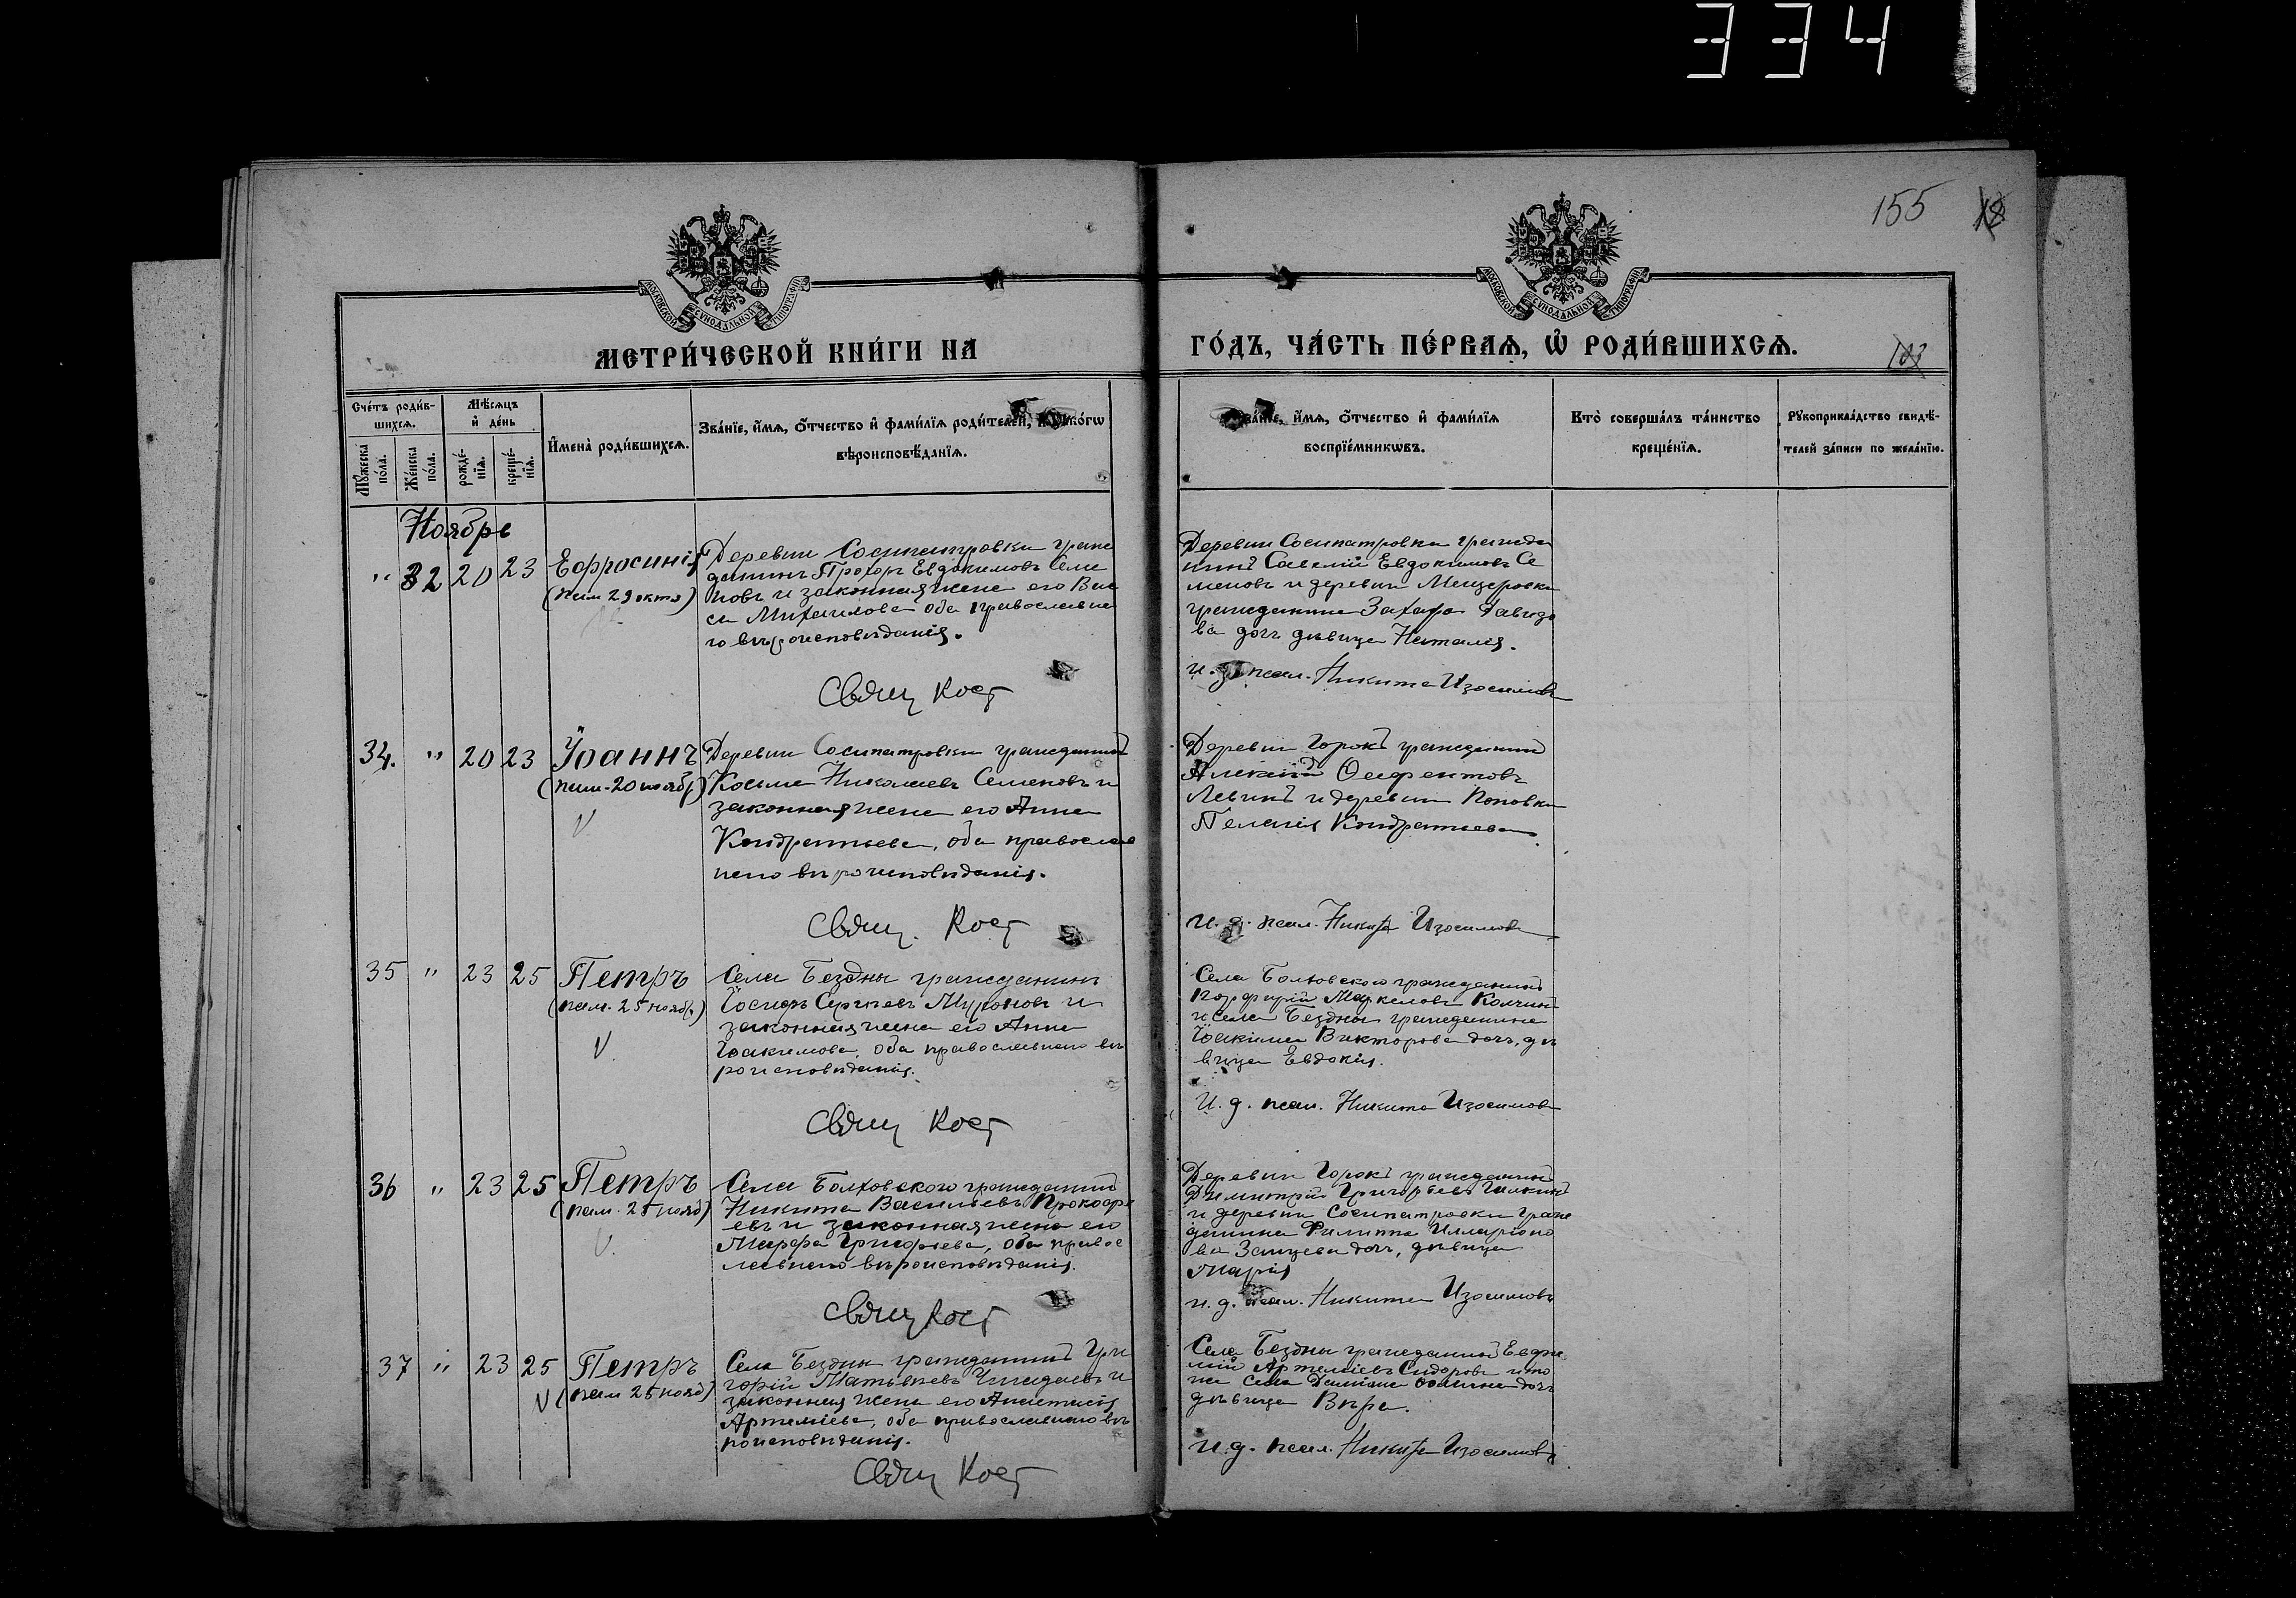 334
155
МОСКОВСКОЙ СѴНОДАЛЬНОЙ ТИПОГРАФІИ
МОСКОВСКОЙ СѴНОДАЛЬНОЙ ТИПОГРАФІИ
МЕТРИ́ЧЕСКОЙ КНИ́ГИ НА
ГО́ДЪ, ЧА́СТЬ ПЕ́РВАѦ, Ѡ҆ РОДИ́ВШИХСѦ.
103
Сче́тъ роди́в-
шихсѧ.
Мѣ́сѧцъ
и҆ де́нь
Мꙋ́жеска по́ла.
Же́нска по́ла.
рожде́-нїѧ.
креще́-нїѧ.
И҆мена̀ роди́вшихсѧ.
Зва́нїе, и҆́мѧ, ѻ҆́тчество и҆ фами́лїѧ роди́телей, и҆ како́гѡ
вѣроисповѣ́данїѧ.
Зва́нїе, и҆́мѧ, ѻ҆́тчество и҆ фами́лїѧ
воспрїе́мникѡвъ.
Кто̀ соверша́лъ та́инство
креще́нїѧ.
Рꙋкоприкла́дство свидѣ́-
телей за́писи по жела́нїю.
Ноябрь
" 32 20 23
Ефросинія
(пам 29 окт)
Деревни Сосипатровки граж
данинъ Прохоръ Евдокимовъ Семе
новъ и законная жена его Вас
са Михаилова оба православна
го вѣроисповѣданія.
Свящ Кост
Деревни Сосипатровки гражда
нинъ Савелій Евдокимовъ Се
меновъ и деревни Мещеровки
гражданина Захара Давидо
ва дочь дѣвица Наталія.
и. д. псал. Никита Изосимовъ
34. " 20 23
Іоаннъ
(пам. 20 ноябр)
Деревни Сосипатровки гражданинъ
Косьма Николаевъ Семеновъ и
законная жена его Анна
Кондратьева, оба православ
наго вѣроисповѣданія.
Свящ. Кост
Деревни Горокъ гражданинъ
Алексій
Левинъ и деревни Поповки
Пелагія Кондратьева.
и. д. псал. Никита Изосимовъ
35 " 23 25
Петръ
(пам. 25 ноябр.)
Села Бездны гражданинъ
Іосифъ Сергѣевъ Миронов и
законная жена его Анна
Іоакимова, оба православнаго вѣ
роисповѣданія.
Свящ Кост
Села Болховского гражданинъ
Порфирій Маркеловъ Колчинъ
и села Бездны гражданина
Іоакима Викторова дочь, дѣ
вица Евдокія.
И. д. псал. Никита Изосимовъ
36 " 23 25
Петръ
(пам. 25 нояб)
Села Болховского гражданинъ
Никита Васильевъ Прокофь
евъ и законная жена его
Марфа Григорьева, оба правос
лавнаго вѣроисповѣданія.
Свящ Кост
Деревни Горокъ гражданинъ
Димитрій Григорьевъ
и деревни Сосипатровки граж
данина Филиппа Илларіоно
ва Зайцева дочь, дѣвица
Марія
и. д. псал. Никита Изосимовъ
37 " 23 25
Петръ
(пам 25 нояб)
Села Бездны гражданинъ Гри
горій Матвѣевъ и
законная жена его Анастасія
Артеміева, оба православнаго вѣ
роисповѣданія.
Свящ Кост
Села Бездны гражданинъ Евфи
мій Артеміевъ Сидоровъ и то
же села Даміана дочь
дѣвица Вѣра.
И. д. псал. Никита Изосимовъ